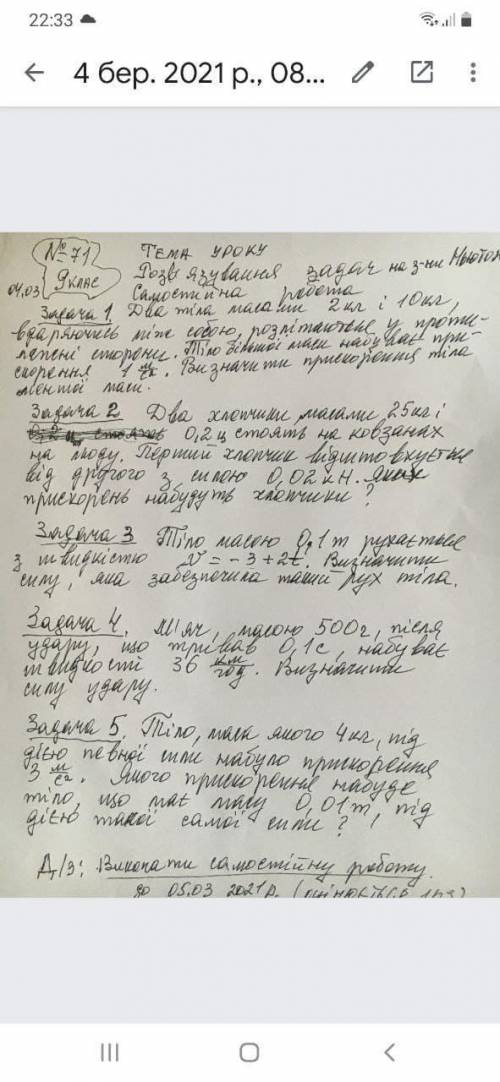 22:33
4 бер. 2021 р., 08...
№71
Тема уроку
9 клас
Розв'язування задач на з-ни Ньютон
04.03
Самостійна робота
Задача 1. Два тіла масами 2кг і 10кг,
вдаряючись між собою, розлітаються у проти-
лежні сторони. Тіло більшої маси набуває при-
скорення 1 м/с². Визначити прискорення тіла
меншої маси.
Задача 2 Два хлопчики масами 25кг і
0,2 ц стоять на ковзанах
на льоду. Перший хлопчик відштовхується
від другого з силою 0,02 кН. Яких
прискорень набудуть хлопчики?
Задача 3 Тіло масою 0,1т рухається
з швидкістю V = -3+2t. Визначити
силу, яка забезпечила такий рух тіла.
Задача 4. М'яч, масою 500г, після
удару, що тривав 0,1с, набуває
швидкості 36 км/год. Визначити
силу удару.
Задача 5. Тіло, маса якого 4кг, під
дією певної сили набуло прискорення
3 м/с². Якого прискорення набуде
тіло, що має масу 0,01т, під
дією такої самої сили?
Д/з: Виконати самостійну роботу.
до 05.03 2021р.